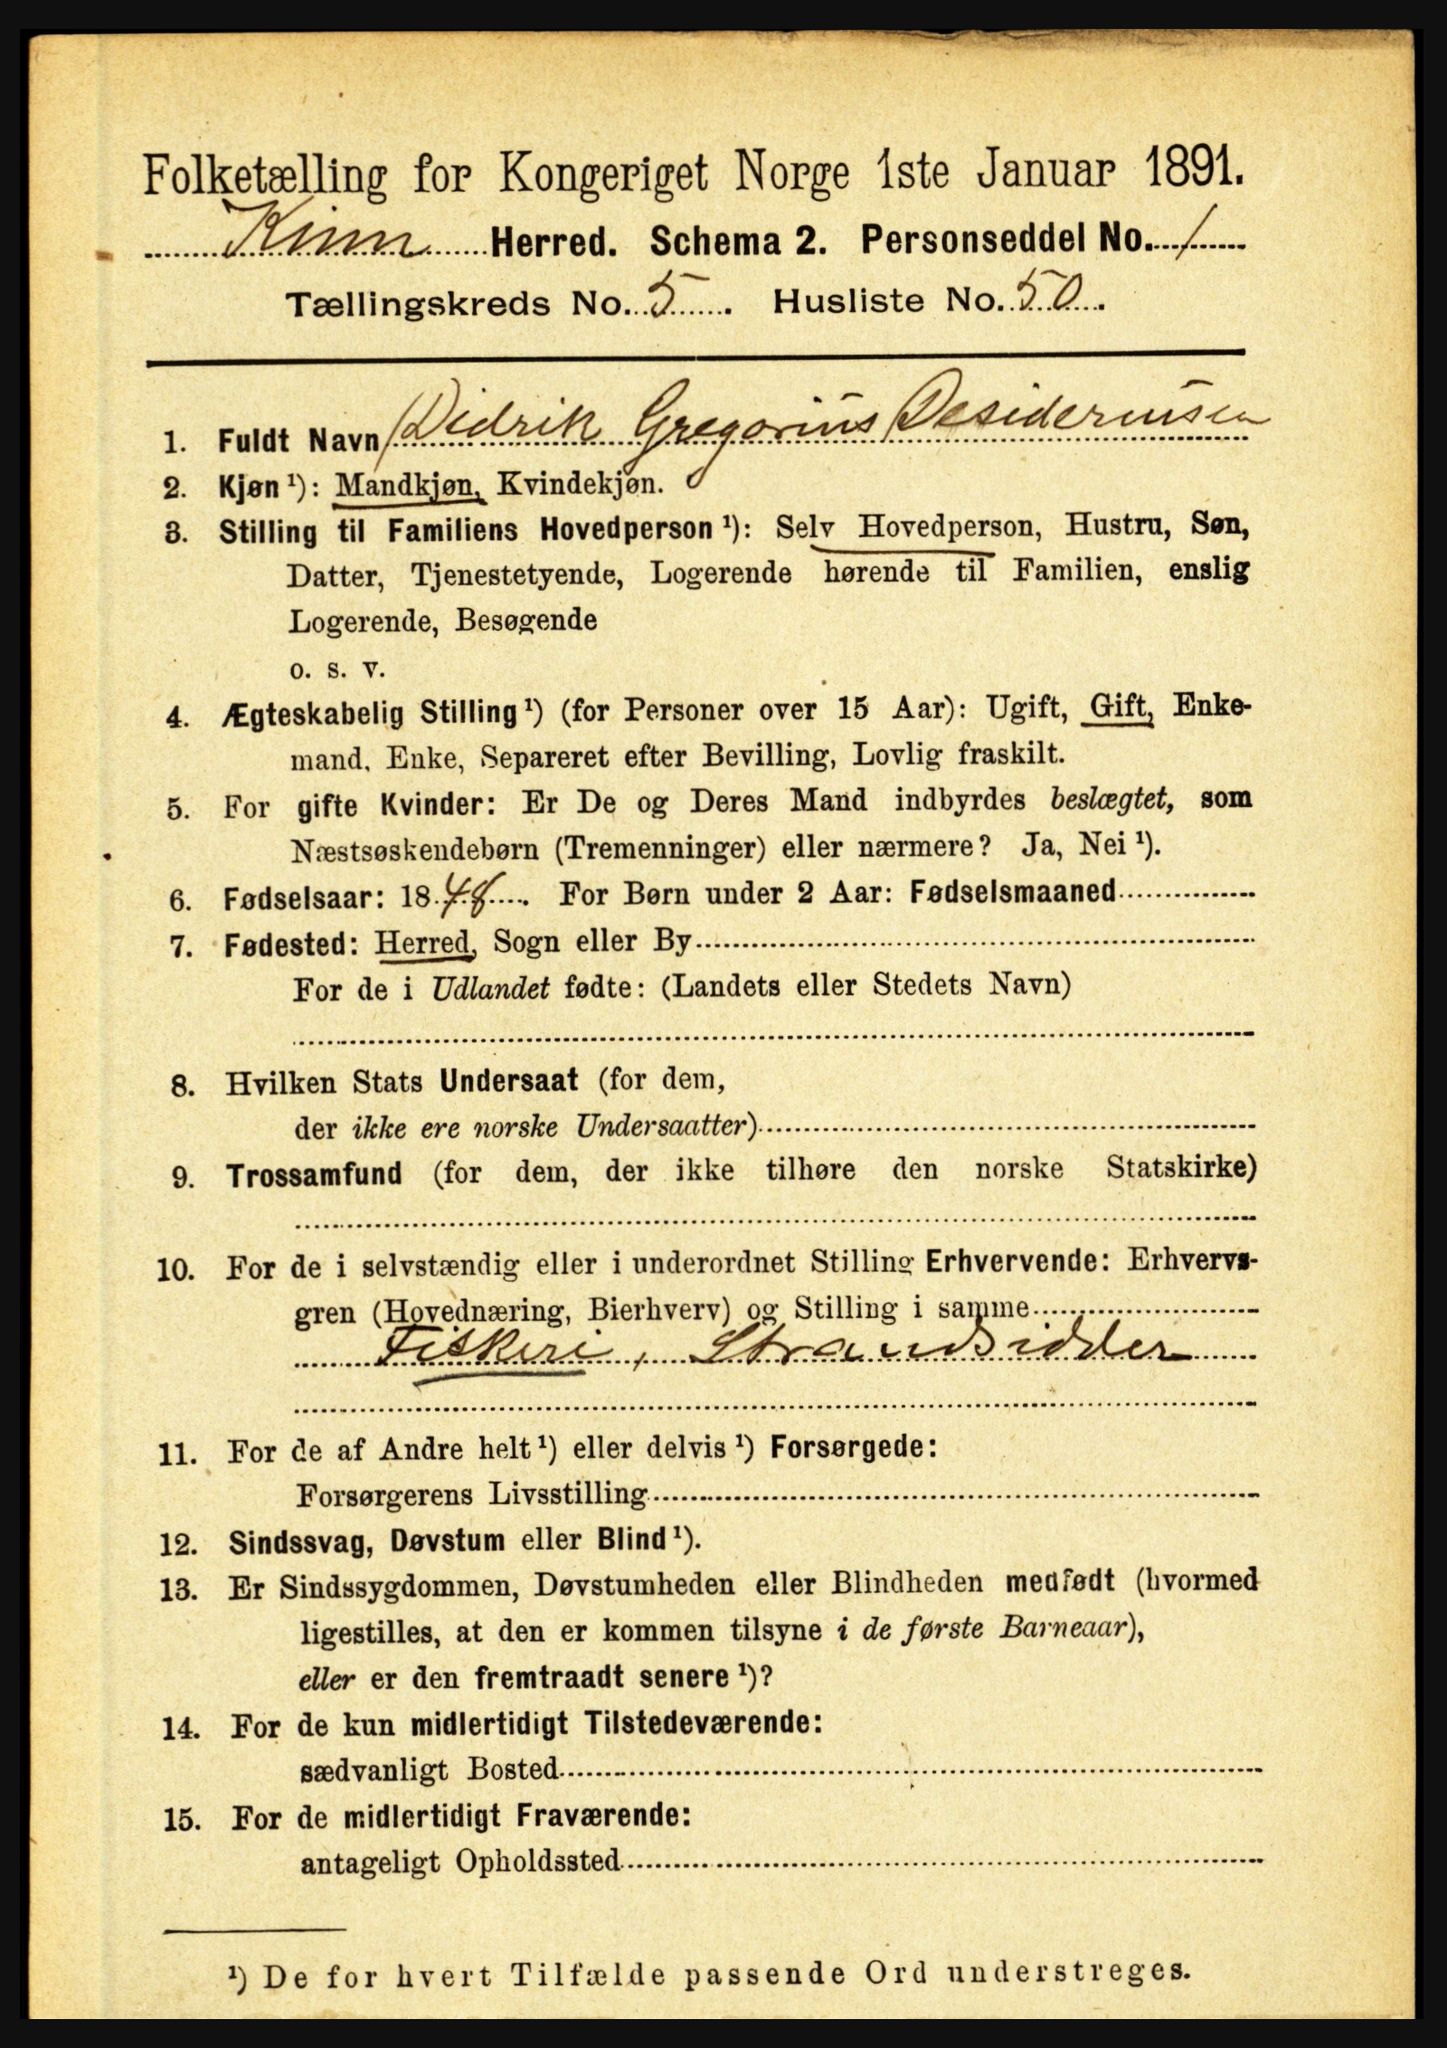 Folketælling for Kongeriget Norge 1ste Januar 1891.
Kinn Herred. Schema 2. Personseddel No. 1
Tællingskreds No. 5. Husliste No. 50.
1. Fuldt Navn Didrik Gregorius Desideriussen
2. Kjøn ¹): Mandkjøn, Kvindekjøn.
3. Stilling til Familiens Hovedperson ¹): Selv Hovedperson, Hustru, Søn,
Datter, Tjenestetyende, Logerende hørende til Familien, enslig
Logerende, Besøgende
o. s. v.
4. Ægteskabelig Stilling ¹) (for Personer over 15 Aar): Ugift, Gift, Enke-
mand, Enke, Separeret efter Bevilling, Lovlig fraskilt.
5. For gifte Kvinder: Er De og Deres Mand indbyrdes beslægtet, som
Næstsøskendebørn (Tremenninger) eller nærmere? Ja, Nei ¹).
6. Fødselsaar: 1848. For Børn under 2 Aar: Fødselsmaaned
7. Fødested: Herred, Sogn eller By
For de i Udlandet fødte: (Landets eller Stedets Navn)
8. Hvilken Stats Undersaat (for dem,
der ikke ere norske Undersaatter)
9. Trossamfund (for dem, der ikke tilhøre den norske Statskirke)
10. For de i selvstændig eller i underordnet Stilling Erhvervende: Erhvervs-
gren (Hovednæring, Bierhverv) og Stilling i samme
Fiskeri, Strandsidder
11. For de af Andre helt ¹) eller delvis ¹) Forsørgede:
Forsørgerens Livsstilling
12. Sindssvag, Døvstum eller Blind ¹).
13. Er Sindssygdommen, Døvstumheden eller Blindheden medfødt (hvormed
ligestilles, at den er kommen tilsyne i de første Barneaar),
eller er den fremtraadt senere ¹)?
14. For de kun midlertidigt Tilstedeværende:
sædvanligt Bosted
15. For de midlertidigt Fraværende:
antageligt Opholdssted
¹) De for hvert Tilfælde passende Ord understreges.